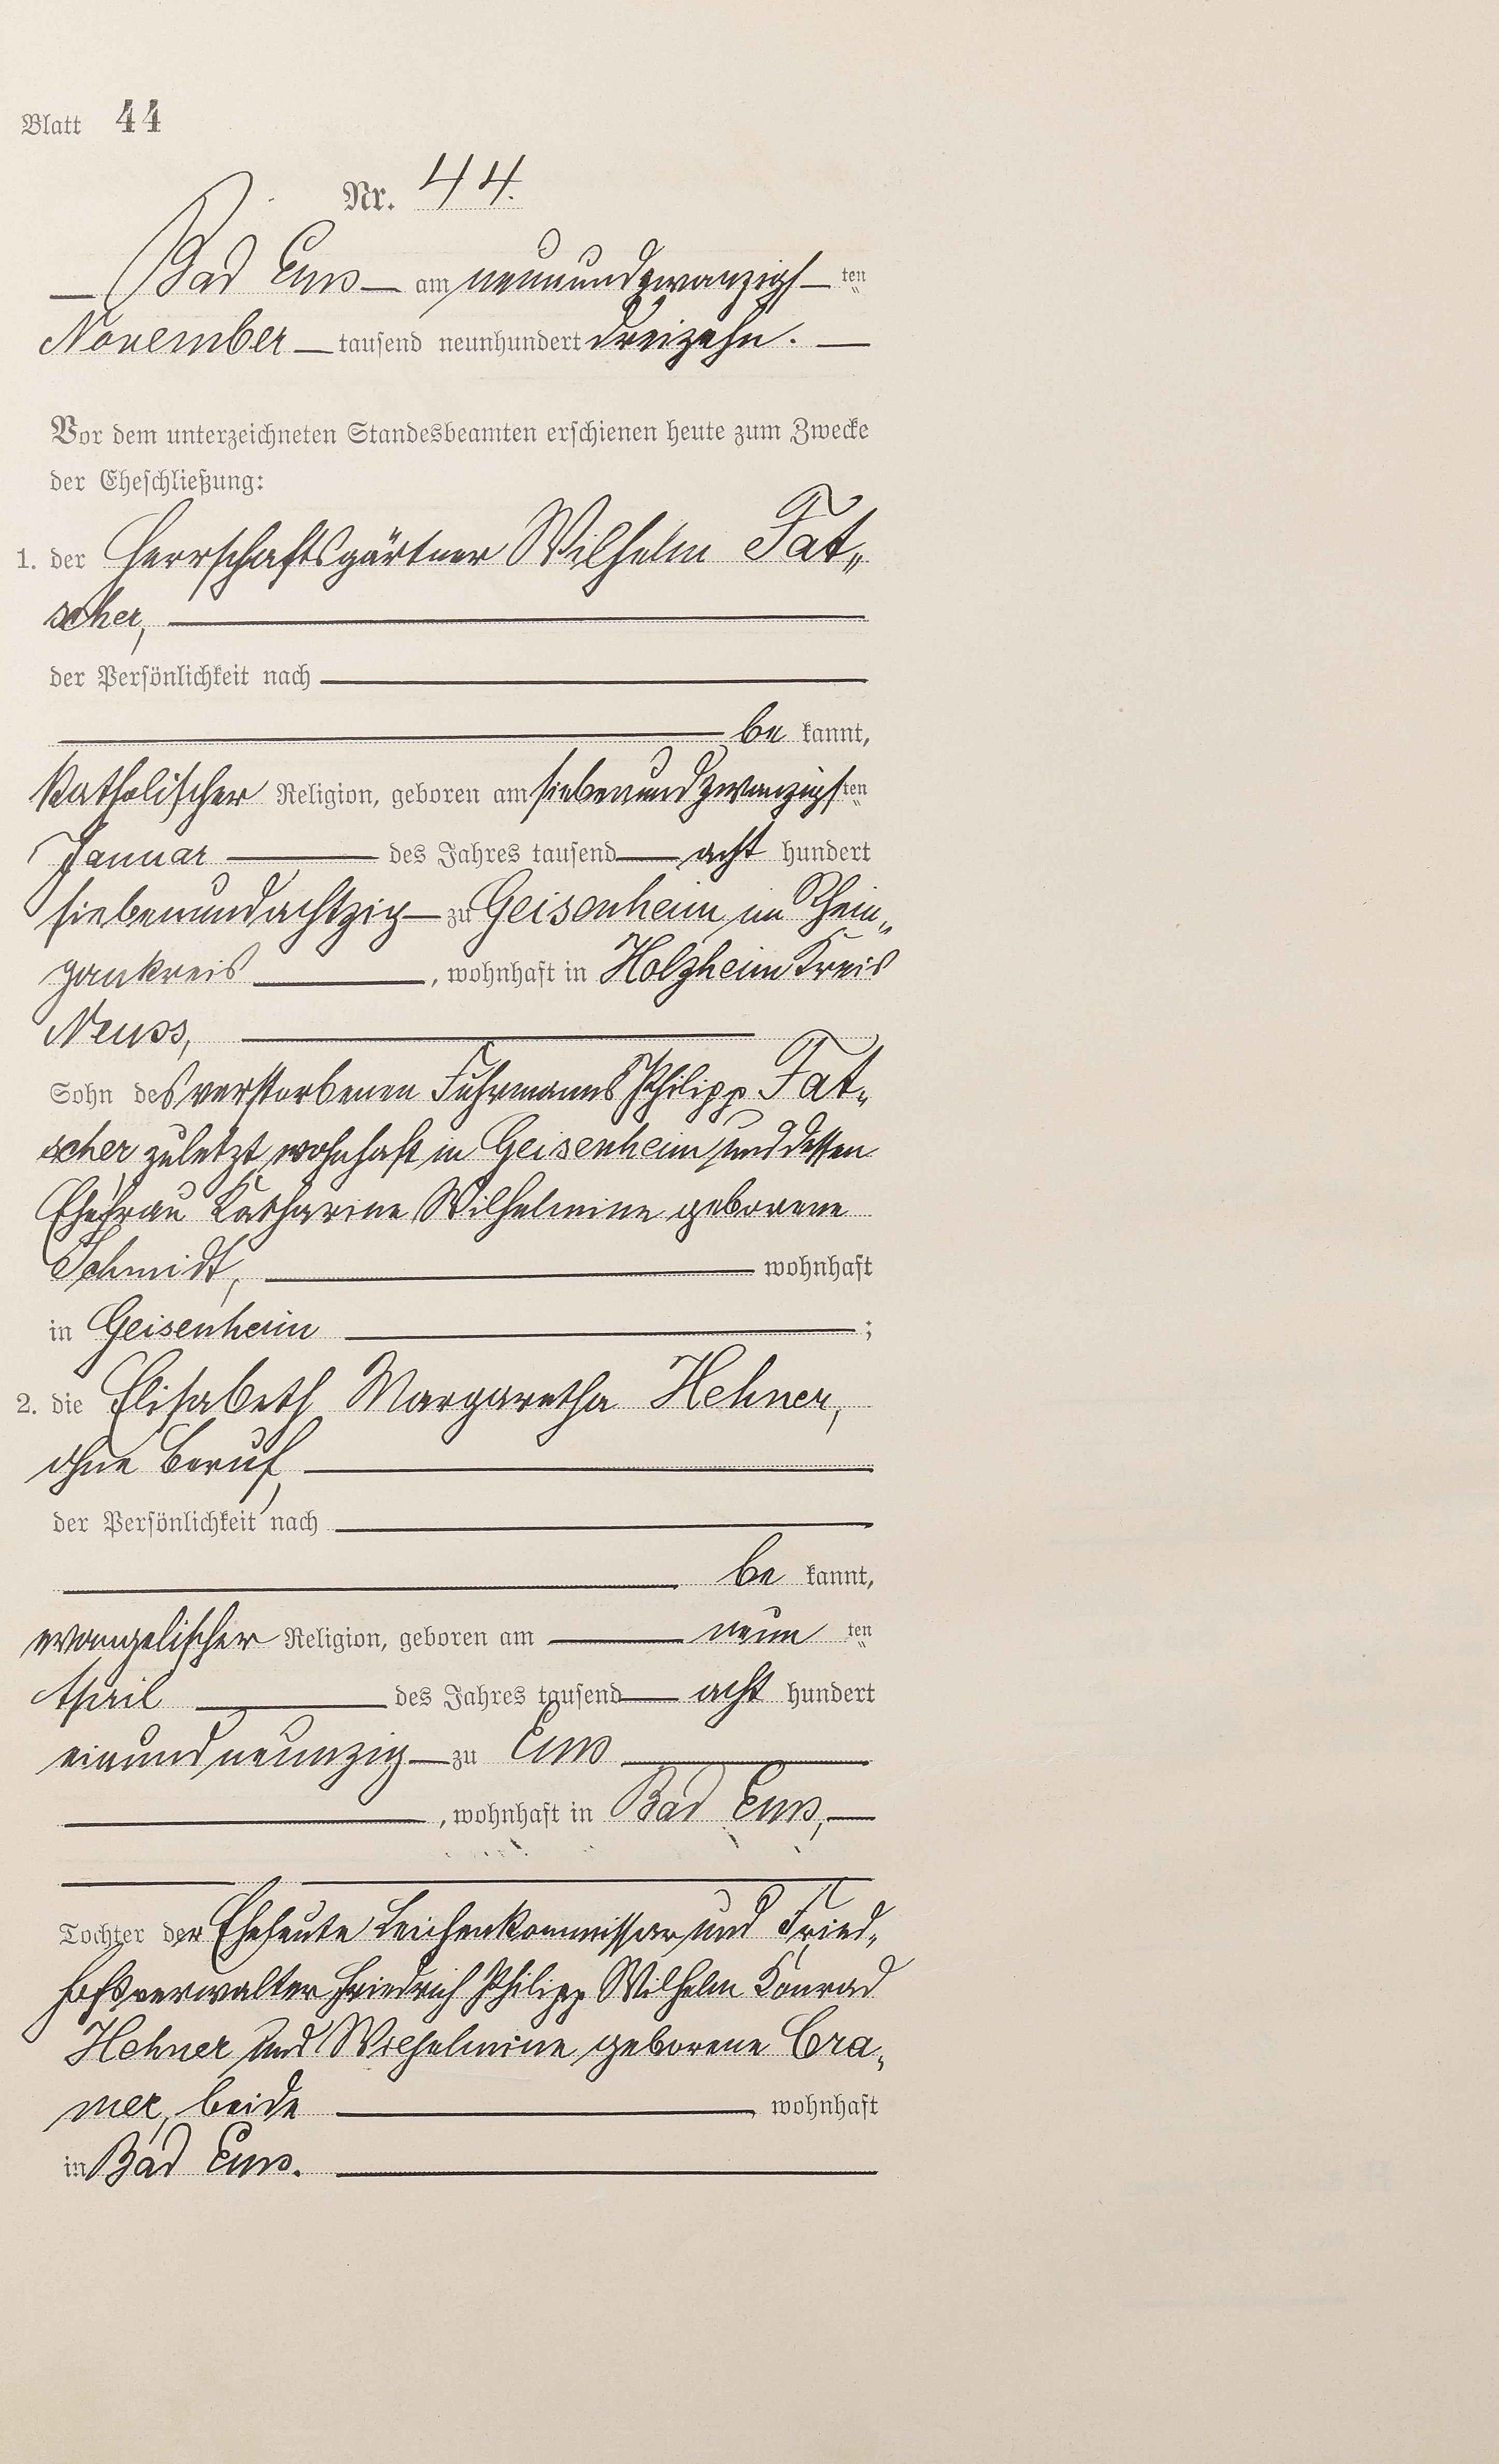 Blatt 44
Nr. 44.
Bad Ems am neunundzwanzigsten
November tausend neunhundert dreizehn.
Vor dem unterzeichneten Standesbeamten erschienen heute zum Zwecke
der Eheschließung:
1. der Herrschaftsgärtner Wilhelm Fat„
scher,
der Persönlichkeit nach
be kannt,
katholischer Religion, geboren am siebenundzwanzigsten
Januar des Jahres tausend acht hundert
siebenundachtzig zu Geisenheim im Rhein„
gaukreis, wohnhaft in Holzheim Kreis
Neuss,
Sohn des verstorbenen Fuhrmanns Philipp Fat„
scher zuletzt wohnhaft in Geisenheim und dessen
Ehefrau Katharine Wilhelmine geborene
Schmidt, wohnhaft
in Geisenheim ;
2. die Elisabeth Margaretha Hehner,
ohne Beruf,
der Persönlichkeit nach
be kannt,
evangelischer Religion, geboren am neun ten
April des Jahres tausend acht hundert
einundneunzig zu Ems
, wohnhaft in Bad Ems,
Tochter der Eheleute Leichenkommissar und Fried„
hofsverwalter Friedrich Philipp Wilhelm Konrad
Hehner und Wilhelmine geborene Cra„
mer, beide wohnhaft
in Bad Ems.